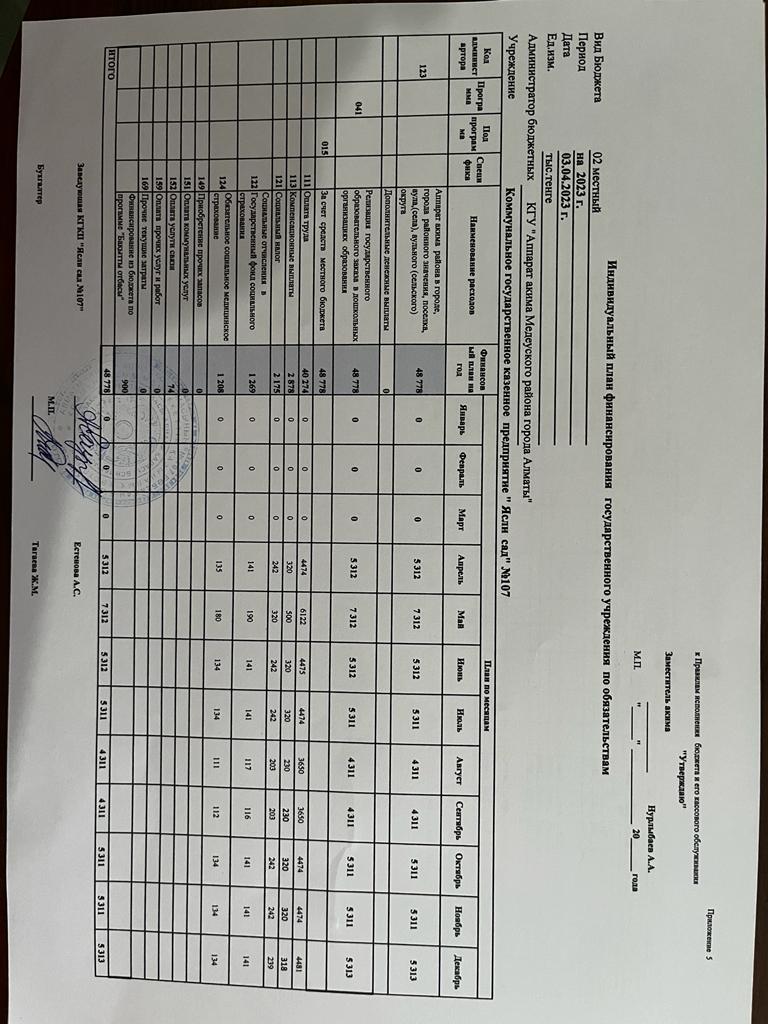 Приложение 5
к Правилам исполнения бюджета и его кассового обслуживания
"Утверждаю"
Заместитель акима
Нурлыбаев А.А.
М.П. "____" ________ 20 ____ года
Индивидуальный план финансирования государственного учреждения по обязательствам
Вид Бюджета 02 местный
Период на 2023 г.
Дата 03.04.2023 г.
Ед.изм. тыс.тенге
Администратор бюджетных КГУ "Аппарат акима Медеуского района города Алматы"
Учреждение Коммунальное государственное казенное предприятие " Ясли сад" №107
Код админист артора Програ мма Под програм ма Специ фика Наименование расходов Финансов ый план на год План по месяцам
Январь Февраль Март Апрель Май Июнь Июль Август Сентябрь Октябрь Ноябрь Декабрь
123 Аппарат акима района в городе, города районного значения, поселка, аула,(села), аульного (сельского) округа 48 778 0 0 0 5 312 7 312 5 312 5 311 4 311 4 311 5 311 5 311 5 313
Дополнительные денежные выплаты 0
041 Реализация государственного образовательного заказа в дошкольных организациях образования 48 778 0 0 0 5 312 7 312 5 312 5 311 4 311 4 311 5 311 5 311 5 313
015 За счет средств местного бюджета 48 778
111 Оплата труда 40 274 0 0 0 4474 6122 4475 4474 3650 3650 4474 4474 4481
113 Компенсационные выплаты 2 878 0 0 0 320 500 320 320 230 230 320 320 318
121 Социальный налог 2 175 0 0 0 242 320 242 242 203 203 242 242 239
122 Социальные отчисления в Государственный фонд социального страхования 1 269 0 0 0 141 190 141 141 117 116 141 141 141
124 Обязательное социальное медицинское страхование 1 208 0 0 0 135 180 134 134 111 112 134 134 134
149 Приобретение прочих запасов 0
151 Оплата коммунальных услуг 0
152 Оплата услуги связи 74
159 Оплата прочих услуг и работ 0
169 Прочие текущие затраты 0
Финансирование из бюджета по програме "Бакытты отбасы" 900
ИТОГО 48 778 0 0 0 5 312 7 312 5 312 5 311 4 311 4 311 5 311 5 311 5 313
Заведующая КГКП "Ясли сад №107" Естенова А.С.
М.П.
Бухгалтер Тагаева Ж.М.